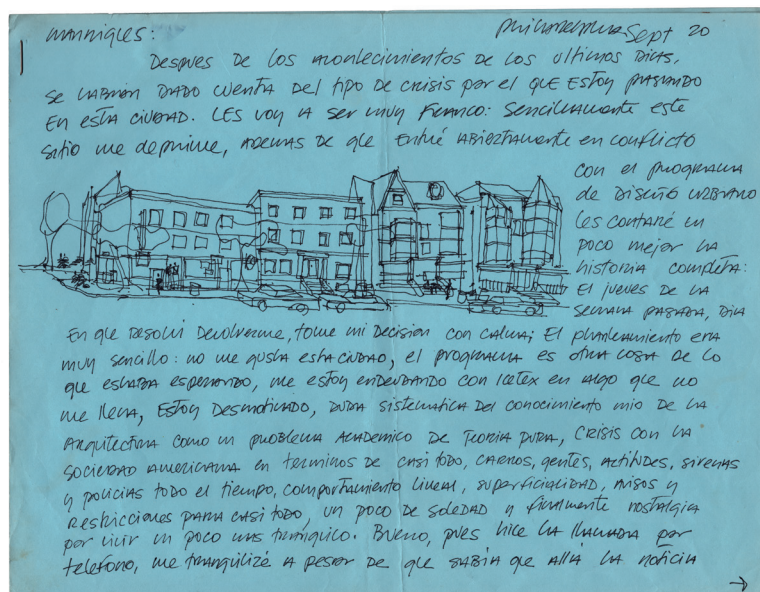 MANRIQUES:
PHILADELPHIA Sept 20
DESPUES DE LOS ACONTECIMIENTOS DE LOS ULTIMOS DIAS,
SE HABRAN DADO CUENTA DEL TIPO DE CRISIS POR EL QUE ESTOY PASANDO
EN ESTA CIUDAD. LES VOY A SER MUY FRANCO: SENCILLAMENTE ESTE
SITIO ME DEPRIME, ADEMAS DE QUE ENTRÉ ABIERTAMENTE EN CONFLICTO
CON EL PROGRAMA
DE DISEÑO URBANO
LES CONTARÉ UN
POCO MEJOR LA
HISTORIA COMPLETA:
EL JUEVES DE LA
SEMANA PASADA, DIA
EN QUE RESOLVI DEVOLVERME, TOME MI DECISION CON CALMA; EL PLANTEAMIENTO ERA
MUY SENCILLO: NO ME GUSTA ESTA CIUDAD, EL PROGRAMA ES OTRA COSA DE LO
QUE ESTABA ESPERANDO, ME ESTOY ENDEUDANDO CON ICETEX EN ALGO QUE NO
ME LLENA, ESTOY DESMOTIVADO, DUDA SISTEMATICA DEL CONOCIMIENTO MIO DE LA
ARQUITECTURA COMO UN PROBLEMA ACADEMICO DE TEORIA PURA, CRISIS CON LA
SOCIEDAD AMERICANA EN TERMINOS DE CASI TODO, CARROS, GENTES, ACTITUDES, SIRENAS
Y POLICIAS TODO EL TIEMPO, COMPORTAMIENTO LINEAL, SUPERFICIALIDAD, AVISOS Y
RESTRICCIONES PARA CASI TODO, UN POCO DE SOLEDAD Y FINALMENTE NOSTALGIA
POR VIVIR UN POCO MAS TRANQUILO. BUENO, PUES HICE LA LLAMADA POR
TELEFONO, ME TRANQUILIZÉ A PESAR DE QUE SABIA QUE ALLÁ LA NOTICIA
→